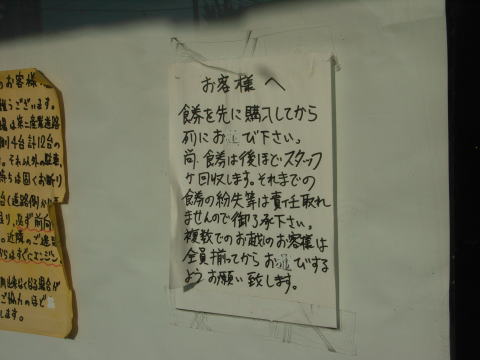 お客様へ
食券を先に購入してから
列にお並び下さい。
尚、食券は後ほどスタッフ
が回収します。それまでの
食券の紛失等は責任取れ
ませんので御了承下さい。
複数でのお越のお客様は
全員揃ってからお並びする
ようお願い致します。
のお客様
うございます。
は第二産業道路
側4台計12台の
。それ以外の駐車
待ちは固くお断り
台(道路側)か
必ず前向
。近隣のご迷
ご協力のほど
します。